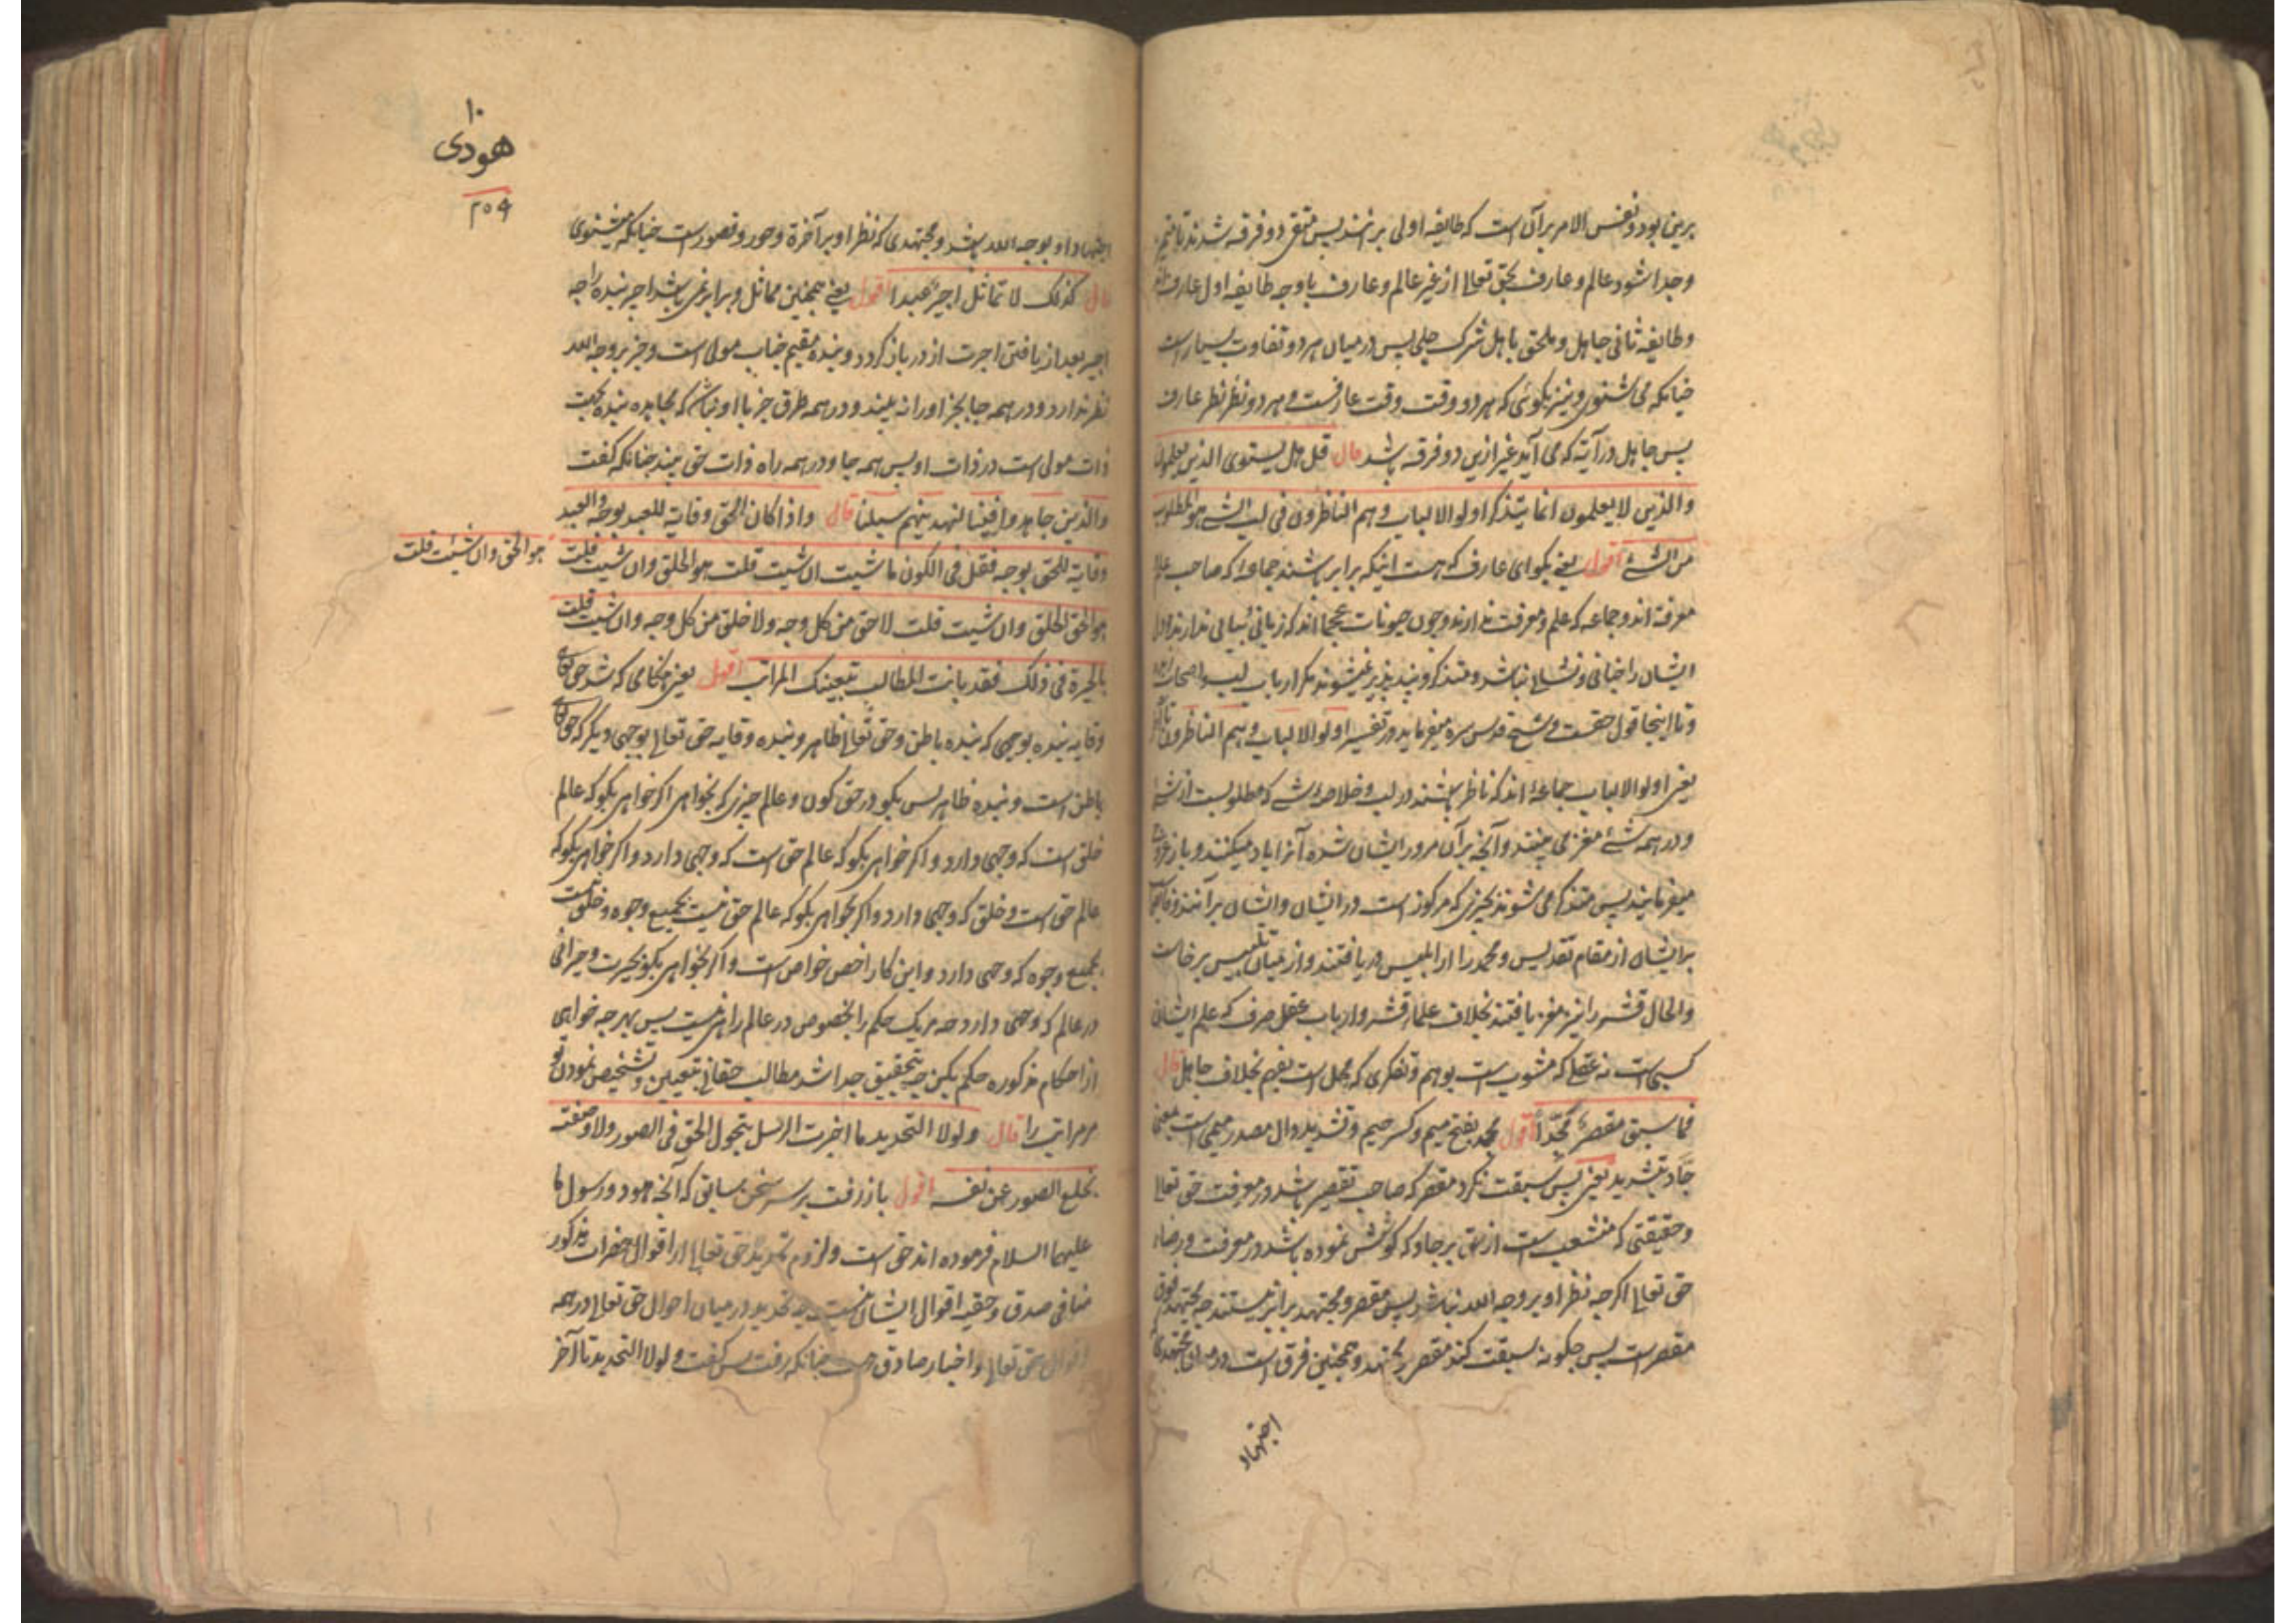 برین بود و نفس الامر بر آن است که طایفه اولی برانند پس متقی دو فرقه شدند تا متمیز
وجدا شود عالم و عارف بحق تعالی از غیر عالم و عارف باوجه طایفه اول عارف اند
وطایفه ثانی جاهل و ملحق باهل شرک جلی پس درمیان هر دو تفاوت بسیار است
چنانکه می شنوی و نیز بگوئی که هر دو وقت وقت عارفست و هر دو نظر نظر عارف
پس جاهل در آیة که می آید غیر ازین دو فرقه باشد قال قل هل یستوی الذین یعلمون
والذین لا یعلمون انما یتذکر اولو الالباب وهم الناظرون فی لب الشئ هو المطلوب
من الشئ اقول یعنی بگو ای عارف که هست اینکه برابر باشند جماعه که صاحب علم
معرفة اند و جماعه که علم و معرفت ندارند و چون حیوانات عجما اند که زبانی
ایشان را نباشد و متذکر و پندپذیر نمیشوند مگر ارباب لب و اصحاب
وتا اینجا قول حقست و شیخ قدس سره میفرماید در تفسیر اولو الالباب وهم الناظرون
یعنی اولو الالباب جماعة اند که ناظر باشند در لب و خلاصه شئ که مطلوبست از شئ
و در همه شئ مغز می بینند و آنچه بر آن مرور ایشان شده آنرا یاد میکنند و باز
میفرمایند پس متذکر می شوند بچیزی که مرکوز است در ایشان و ایشان بر آنند
بر ایشان از مقام تقدیس و محمد را از ابلیس دریافتند و از میان تلبیس برخاست
والحال قشر را نیز مغز یافتند بخلاف علماء قشر و ارباب عقل صرف که علم ایشان
کسبی است نه عقلی که مشوب است بوهم و تفکری که محل است بغیر بخلاف جاهل قال
فما سبق مقصر مجدّا اقول مجد بفتح میم و کسر جیم و تشدید دال مصدر میمی است بمعنی
جادّ بتشدید یعنی پس سبقت نکرد مقصر که صاحب تقصیر باشد در معرفت حق تعالی
و حقیقتی که منشعب است از حق بر جاد که کوشش نموده باشد در معرفت و رضاء
حق تعالی اگرچه نظر او بر وجه الله نباشد پس مقصر و مجتهد برابر نیستند چه مجتهد فوق
مقصر است پس چگونه سبقت کند مقصر بر مجتهد و همچنین فرق است در میان مجتهدی که
اجتهاد
۱۰
هودی
۲۵۴
اجتهاد او بوجه الله باشد و مجتهدی که نظر او بر آخرة و حور و قصور است چنانکه میشنوی
قال کذلک لا تماثل اجیر عبدا اقول یعنی همچنین مماثل و برابر نمی باشد اجیر بنده را چه
اجیر بعد از یافتن اجرت از در باز گردد و بنده مقیم جناب مولی است و جز بر وجه الله
نظر ندارد و در همه جا بجز او را نه بیند و در همه طرق جز با او نباشد که مجاهده بنده بجهت
ذات مولی است در ذات او پس همه جا و در همه راه ذات حق بیند چنانکه گفت
والذین جاهدوا فینا لنهدینهم سبلنا قال واذا کان الحق وقایة للعبد بوجه والعبد
وقایة للحق بوجه فقل فی الکون ما شیت ان شیت قلت هو الخلق وان شیت قلت
هو الحق وان شئت قلت
هو الحق الخلق وان شیت قلت لا حق من کل وجه ولا خلق من کل وجه وان شیت قلت
بالحیرة فی ذلک فقد بانت المطالب بتعینک المراتب اقول یعنی هنگامی که شد حق تعالی
وقایه بنده بوجهی که بنده باطن و حق تعالی ظاهر و بنده وقایه حق تعالی بوجهی دیگر که حق تعالی
باطن است و بنده ظاهر پس بگو در حق کون و عالم چیزی که بخواهی اگر خواهی بگو که عالم
خلق است که وجهی دارد و اگر خواهی بگو که عالم حق است که وجهی دارد و اگر خواهی بگو که
عالم حق است و خلق که وجهی دارد و اگر بخواهی بگو که عالم حق نیست بجمیع وجوه و خلق نیست
بجمیع وجوه که وجهی دارد و این کار اخص خواص است و اگر بخواهی بگو بحیرت و حیرانی
در عالم که وجهی دارد چه هر یک حکم را بخصوص در عالم راهی نیست پس بهر چه خواهی
از احکام مذکوره حکم بکن چه بتحقیق جدا شد مطالب حقانی بتعیین و تشخیص نمودن تو
مر مراتب را قال ولولا التحدید ما اخبرت الرسل بتحول الحق فی الصور ولا وصفته
بخلع الصور عن نفسه اقول باز رفت بر سر سخن سابق که آنچه هود و رسول ما
علیهما السلام فرموده اند حق است و لزوم تحدید حق تعالی از اقوال حضرات مذکور
منافی صدق و حقیه اقوال ایشان نیست چه تحدید در میان احوال حق تعالی در همه
اقوال حق تعالی و اخبار صادق است چنانکه رفت پس گفت و لولا التحدید تا آخر